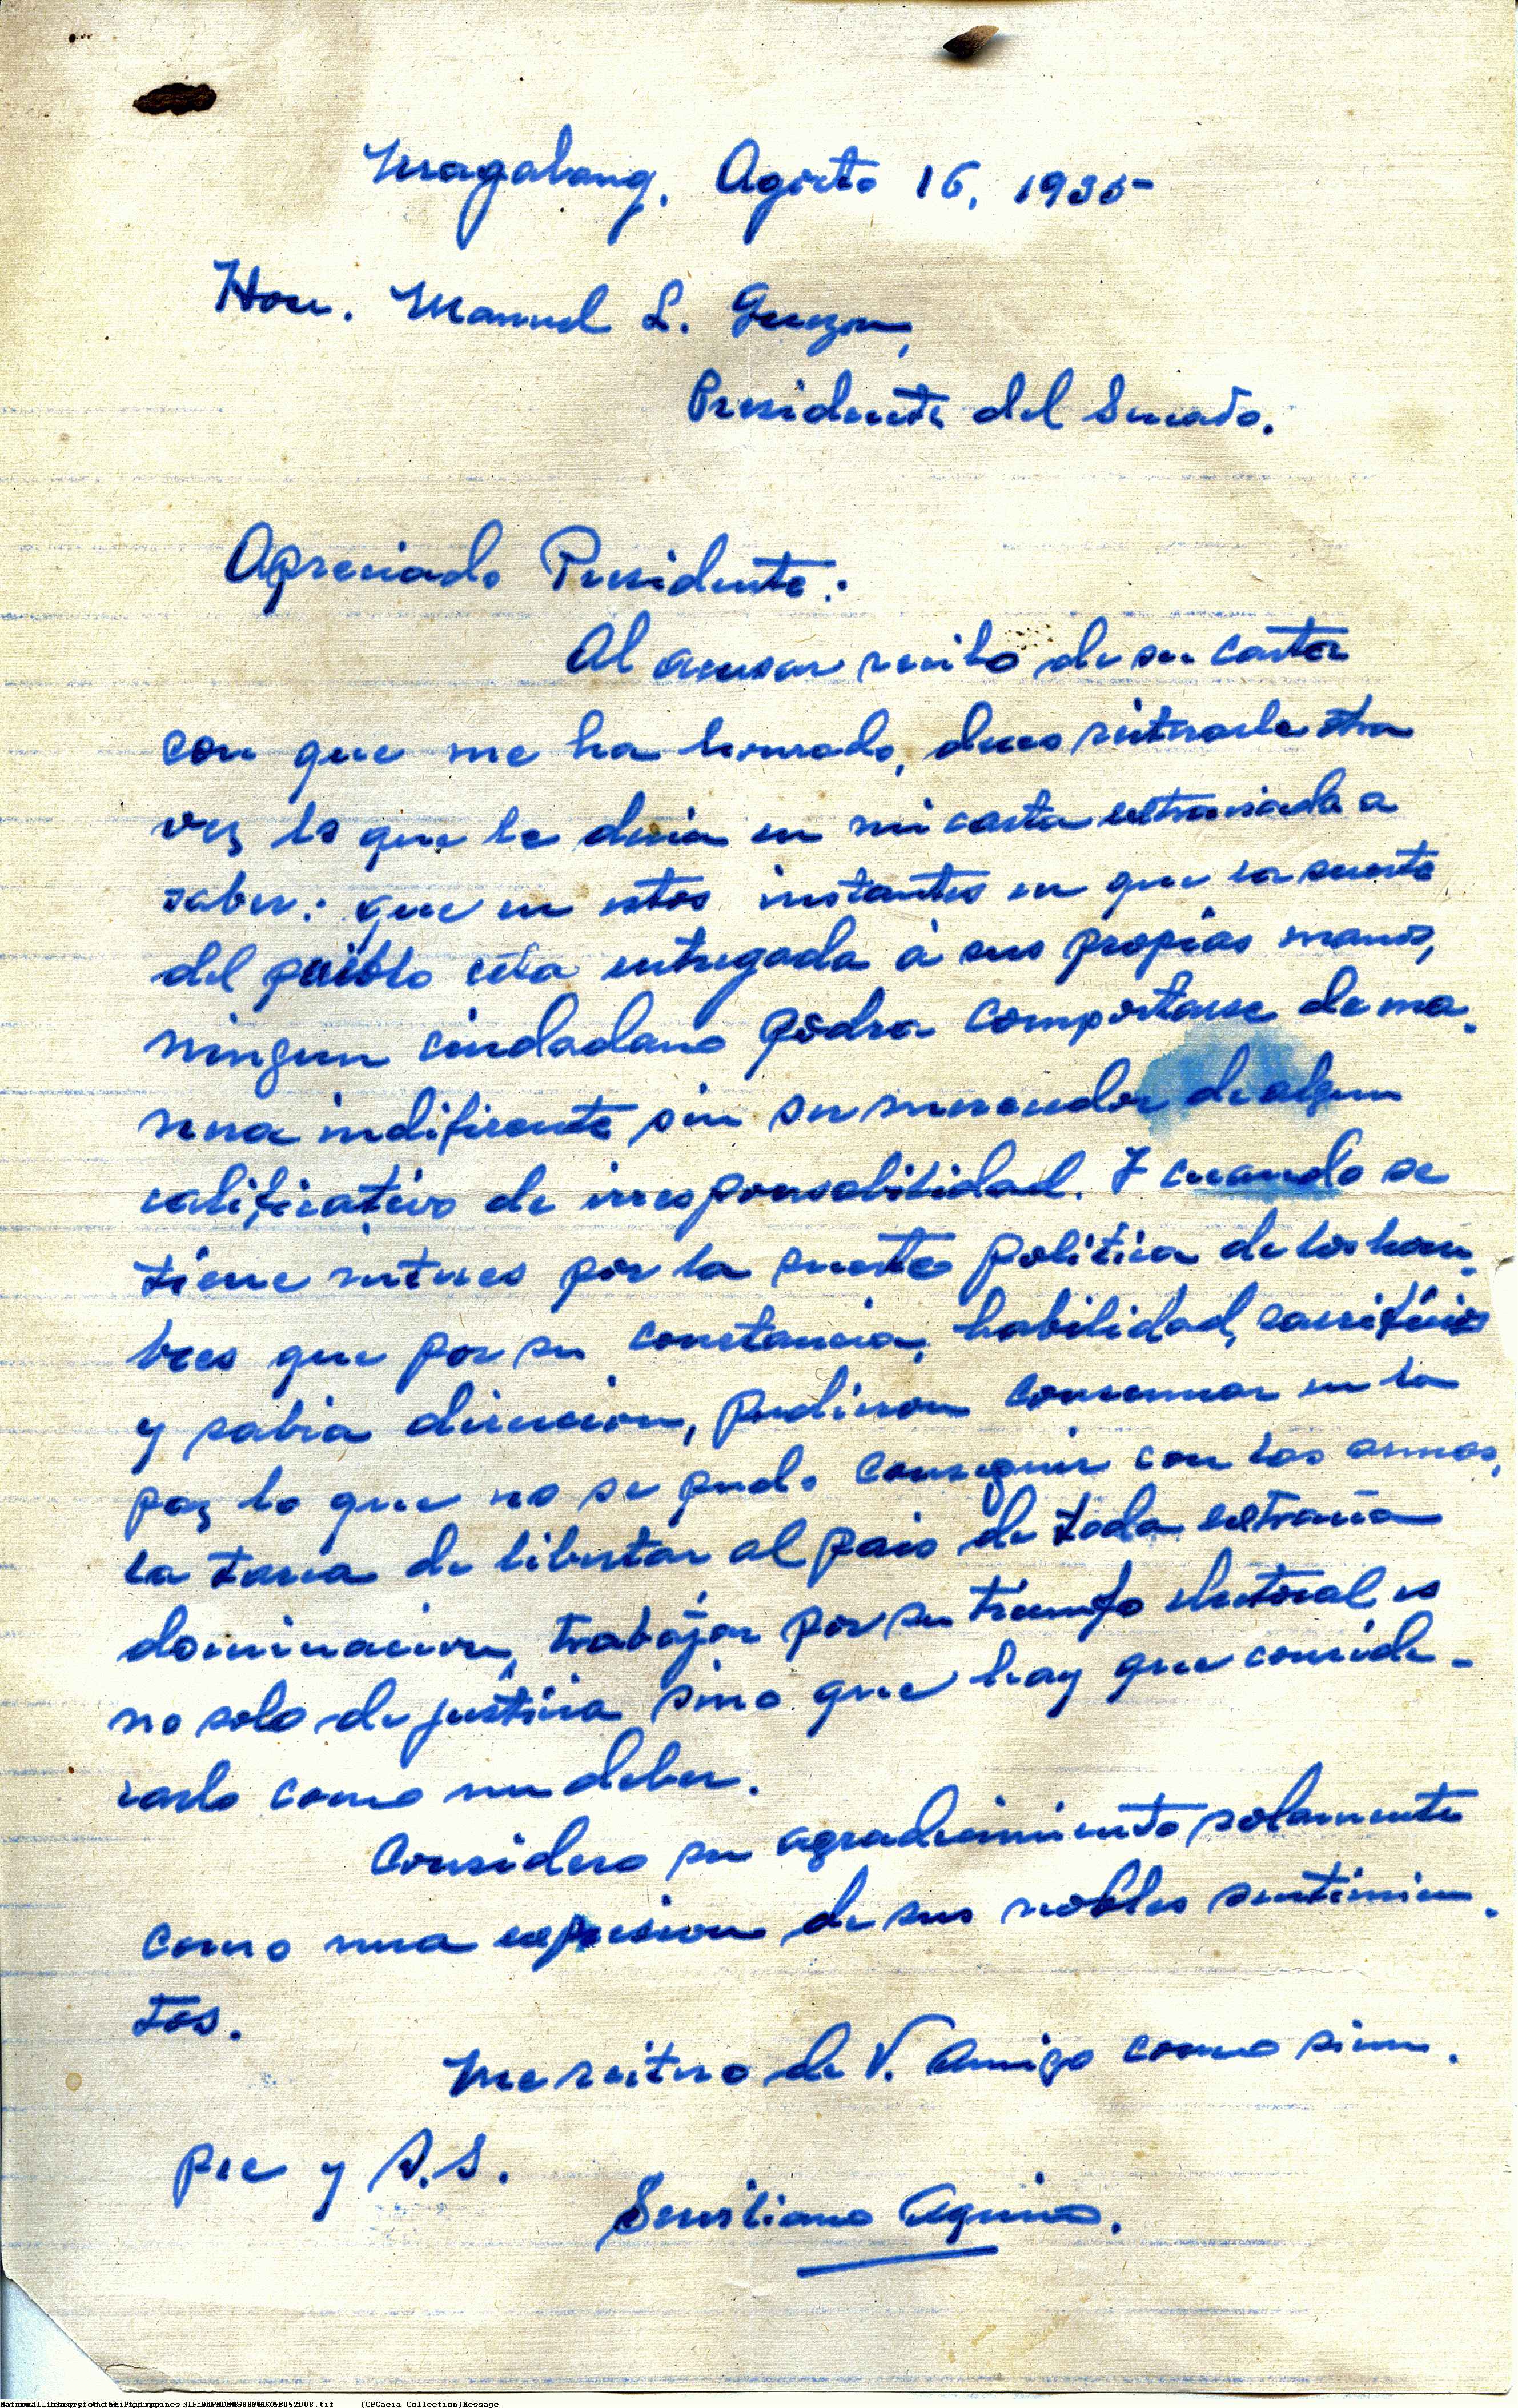 Magalang, Agosto 16, 1935
Hon. Manuel L. Quezon,
Presidente del Senado.
Apreciado Presidente:
Al acusar recibo de su carta
con que me ha honrado, deseo reiterarle otra
vez lo que le decia en mi carta extraviada a
saber: que en estos instantes en que la suerte
del pueblo esta entregada á sus propias manos,
ningun ciudadano podra comportarse de ma-
nera indiferente sin ser merecedor de algun
calificativo de irresponsabilidad. Y cuando se
tiene interes por la suerte politica de los hom-
bres que por su constancia, habilidad, sacrificios
y sabia direccion, pudieron consumar en la
paz lo que no se pudo conseguir con las armas,
la tarea de libertar al pais de toda extraña
dominacion, trabajar por su triunfo electoral es
no solo de justicia sino que hay que conside-
rarlo como un deber.
Considero su agradecimiento solamente
como una expresion de sus nobles sentimien-
tos.
Me reitero de V. amigo como siem-
pre y S.S.
Servillano Aquino.
National Library of the Philippines
(CPGacia Collection)Message